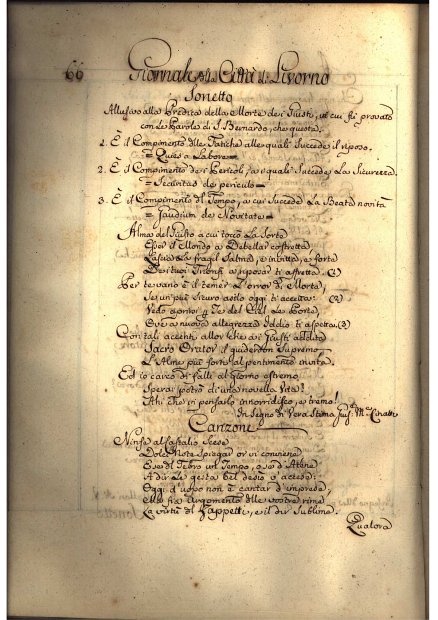 66 Giornale della Città di Livorno
Sonetto
Allusivo alla Predica della Morte dei Giusti, in cui fu provato
con le Parole di S. Bernardo, che questa.
1. È il Compimento delle Fatiche alle quali succede il riposo.
= Quies a Labore =
2. È il Compimento dei Pericoli, a quali succede La Sicurezza.
= Securitas de periculo =
3. È il Compimento del Tempo, a cui succede La Beata novità
= Gaudium de Novitate =
Alma del Giusto a cui toccò La Sorte
Esser il Mondo a Debellar costretta,
Lascia la fragil Salma, e invitta, e forte
Dei tuoi Trionfi a riposar ti affretta. (1)
Per te vano è il temer L'orror di Morte,
Se un più sicuro asilo oggi ti accetta: (2)
Vedo aprirsi per Te del Ciel Le Porte,
Ove a nuova allegrezza Iddio ti aspetta. (3)
Con tali accenti, allor che ai Giusti addita
Sacro Orator il guiderdon Supremo,
L'Alme più forti al pentimento invita.
Ed io carco di falli al Giorno estremo
Sperar potrò di una novella Vita?
Ahi che in pensarlo inorridisco, e tremo!
In Segno di Vera Stima
Canzone
Ninfe al Castalio
Dolci Note Spiegar or vi conviene
E se al Tebro un Tempo, o se a Atene
A dir Le gesta bel desio v'accese:
Oggi d'uopo non è cantar d'imprese,
Ma fia Argomento alle vostre rime
La virtù del Zappetti, e il dir Sublime.
Qualora